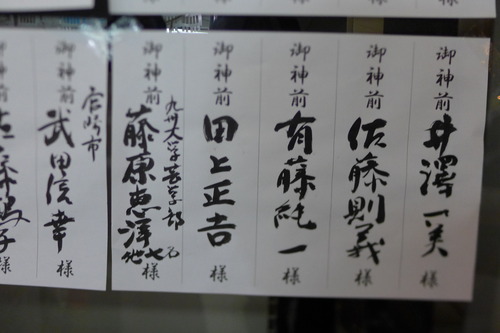 御神前 井澤一英 様
御神前 佐藤則義 様
御神前 有藤純一 様
御神前 田上正吉 様
御神前 九州大学芸工学部 藤原惠洋 他七名 様
御神前 宮崎市 武田信幸 様
御神前 子 様